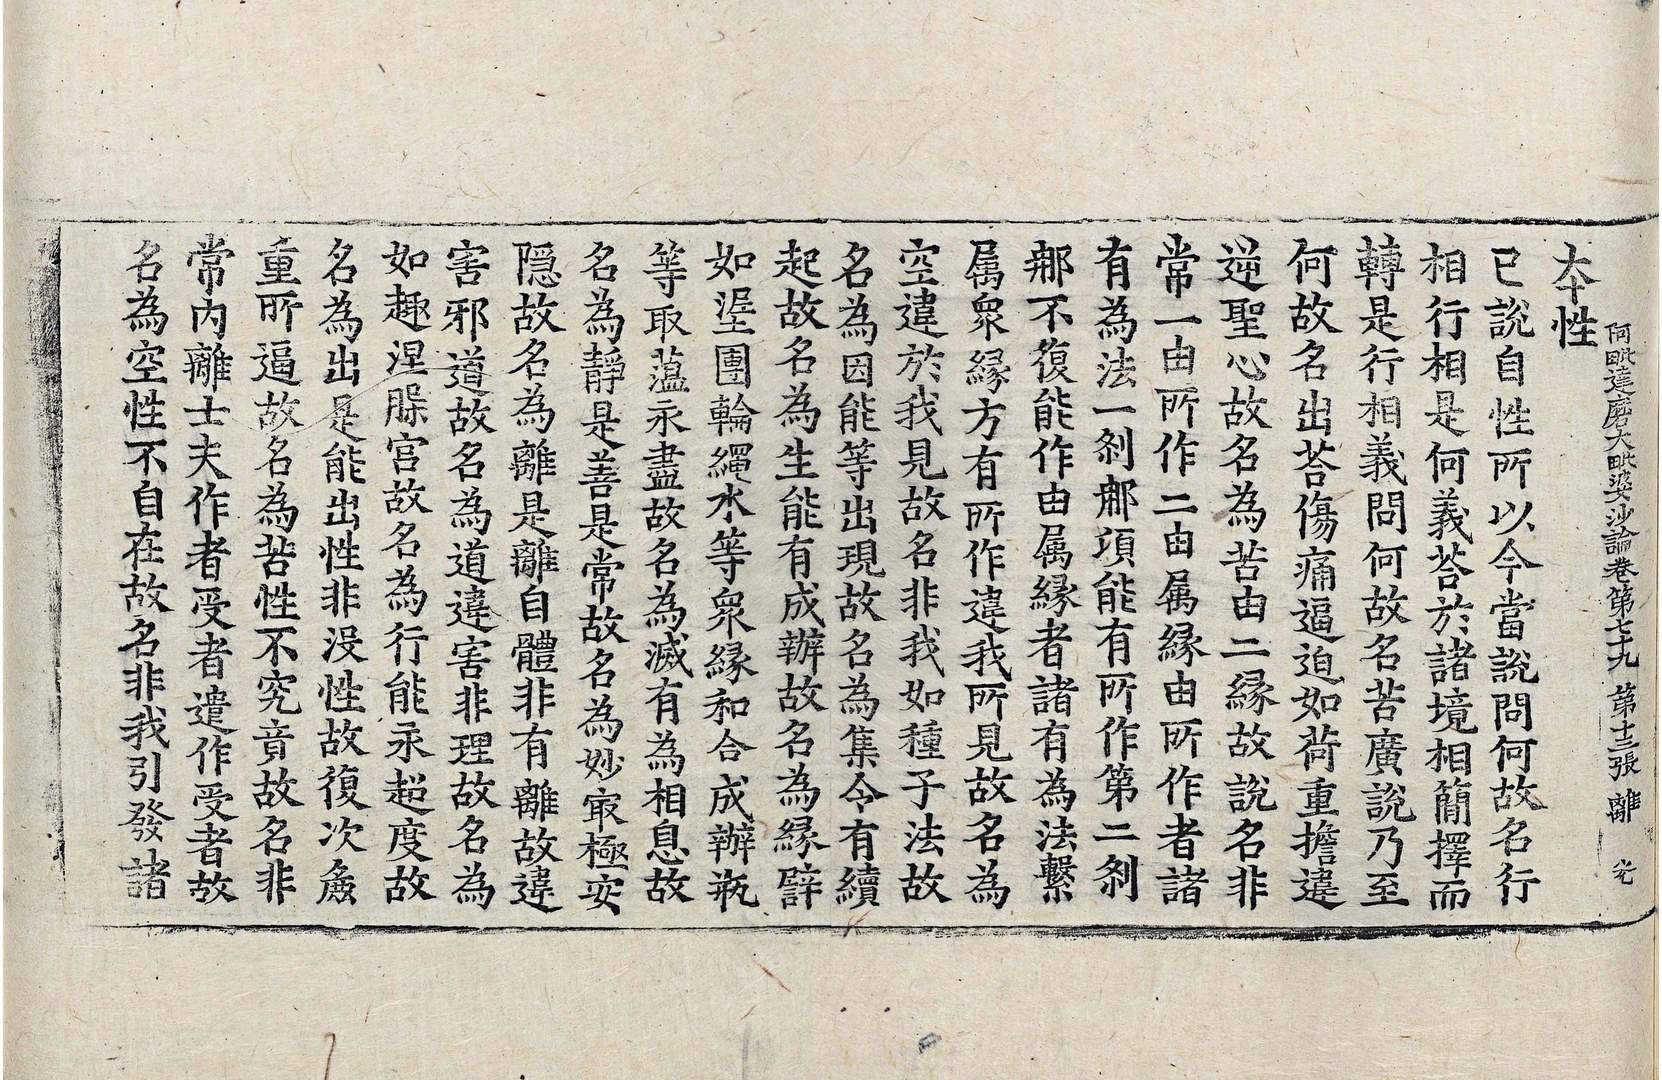 阿毗達磨大毗婆沙論卷第七十九 第十三張 離
本性
已說自性所以今當說問何故名行
相行相是何義荅於諸境相簡擇而
轉是行相義問何故名苦廣說乃至
何故名出荅傷痛逼迫如荷重擔違
逆聖心故名為苦由二緣故說名非
常一由所作二由属緣由所作者諸
有為法一刹那頃能有所作第二刹
那不復能作由属緣者諸有為法繫
属衆緣方有所作違我所見故名為
空違於我見故名非我如種子法故
名為因能等出現故名為集令有續
起故名為生能有成辦故名為緣譬
如埿團輪繩水等衆緣和合成辦瓶
等取藴永盡故名為滅有為相息故
名為靜是善是常故名為妙㝡極安
隱故名為離是離自體非有離故違
害邪道故名為道違害非理故名為
如趣涅槃宮故名為行能永超度故
名為出是能出性非没性故復次麁
重所逼故名為苦性不究竟故名非
常內離士夫作者受者遣作受者故
名為空性不自在故名非我引發諸